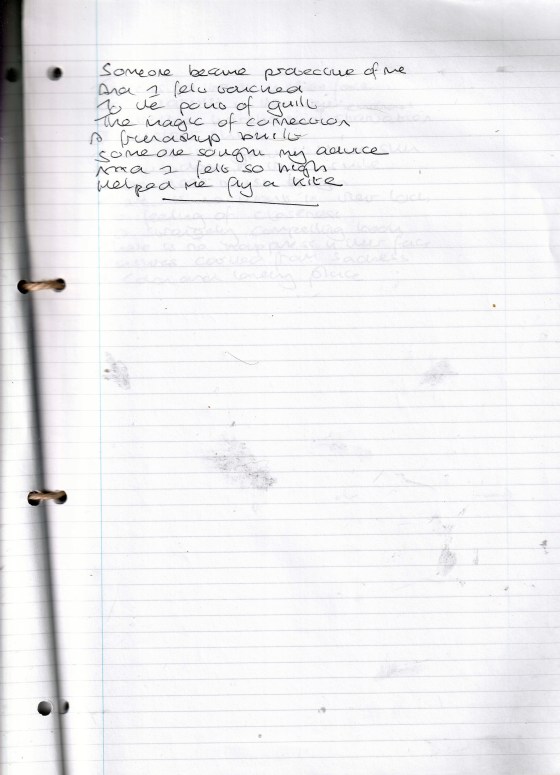 Someone became protective of me
And I felt touched
To the point of guilt
The magic of connection
A friendship built
Someone sought my advice
And I felt so high
Helped me fly a kite